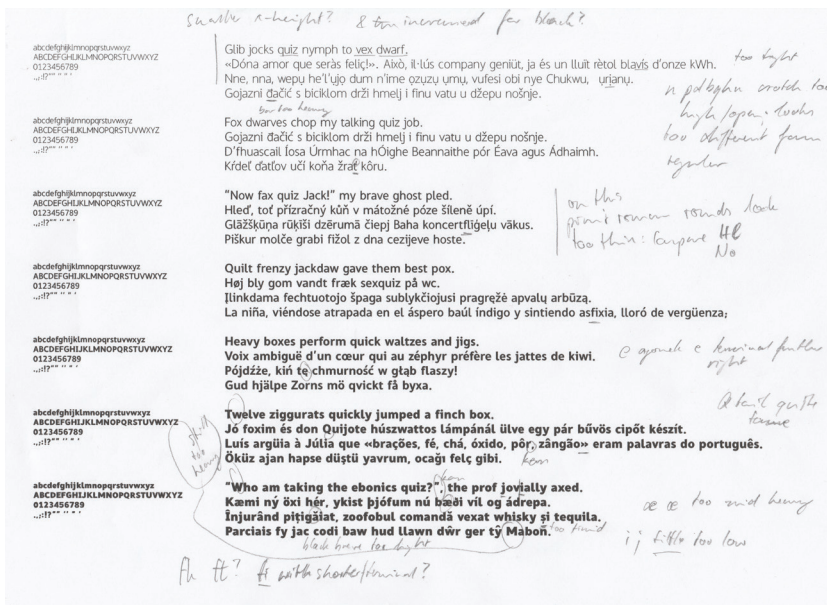 smaller x-height? & too increased for black?
abcdefghijklmnopqrstuvwxyz
ABCDEFGHIJKLMNOPQRSTUVWXYZ
0123456789
.,;:!?"" '' " '
Glib jocks quiz nymph to vex dwarf.
«Dóna amor que seràs feliç!». Això, il·lús company geniüt, ja és un lluït rètol blavís d'onze kWh.
Nne, nna, wepụ he'l'ụjọ dum n'ime ọzụzụ ụmụ, vufesi obi nye Chukwu, ụrịanụ.
Gojazni đačić s biciklom drži hmelj i finu vatu u džepu nošnje.
too light
n pdbghu crotch too
high/open. looks
too different from
regular
bar too heavy
abcdefghijklmnopqrstuvwxyz
ABCDEFGHIJKLMNOPQRSTUVWXYZ
0123456789
.,;:!?"" '' " '
Fox dwarves chop my talking quiz job.
Gojazni đačić s biciklom drži hmelj i finu vatu u džepu nošnje.
D'fhuascail Íosa Úrmhac na hÓighe Beannaithe pór Éava agus Ádhaimh.
Kŕdeľ ďatľov učí koňa žrať kôru.
abcdefghijklmnopqrstuvwxyz
ABCDEFGHIJKLMNOPQRSTUVWXYZ
0123456789
.,;:!?"" '' " '
"Now fax quiz Jack!" my brave ghost pled.
Hleď, toť přízračný kůň v mátožné póze šíleně úpí.
Glāžšķūņa rūķīši dzērumā čiepj Baha koncertflīģeļu vākus.
Piškur molče grabi fižol z dna cezijeve hoste.
on this
print roman rounds look
too thin: compare HC
No
abcdefghijklmnopqrstuvwxyz
ABCDEFGHIJKLMNOPQRSTUVWXYZ
0123456789
.,;:!?"" '' " '
Quilt frenzy jackdaw gave them best pox.
Høj bly gom vandt fræk sexquiz på wc.
Įlinkdama fechtuotojo špaga sublykčiojusi pragręžė apvalų arbūzą.
La niña, viéndose atrapada en el áspero baúl índigo y sintiendo asfixia, lloró de vergüenza;
abcdefghijklmnopqrstuvwxyz
ABCDEFGHIJKLMNOPQRSTUVWXYZ
0123456789
.,;:!?"" '' " '
Heavy boxes perform quick waltzes and jigs.
Voix ambiguë d'un cœur qui au zéphyr préfère les jattes de kiwi.
Pójdźże, kiń tę chmurność w głąb flaszy!
Gud hjälpe Zorns mö qvickt få byxa.
e ogonek e terminal further
right
abcdefghijklmnopqrstuvwxyz
ABCDEFGHIJKLMNOPQRSTUVWXYZ
0123456789
.,;:!?"" '' " '
Twelve ziggurats quickly jumped a finch box.
Jó foxim és don Quijote húszwattos lámpánál ülve egy pár bűvös cipőt készít.
Luís argüia à Júlia que «brações, fé, chá, óxido, pôr, zângão» eram palavras do português.
Öküz ajan hapse düştü yavrum, ocağı felç gibi.
Q tail quite
still
too
heavy
kern
kern
abcdefghijklmnopqrstuvwxyz
ABCDEFGHIJKLMNOPQRSTUVWXYZ
0123456789
.,;:!?"" '' " '
"Who am taking the ebonics quiz?", the prof jovially axed.
Kæmi ný öxi hér, ykist þjófum nú bæði víl og ádrepa.
Înjurând pițigăiat, zoofobul comandă vexat whisky și tequila.
Parciais fy jac codi baw hud llawn dŵr ger tŷ Mabon.
too timid
æ œ too mid heavy
i j tittle too low
black breve too light
fh ft? fi with shorter terminal?